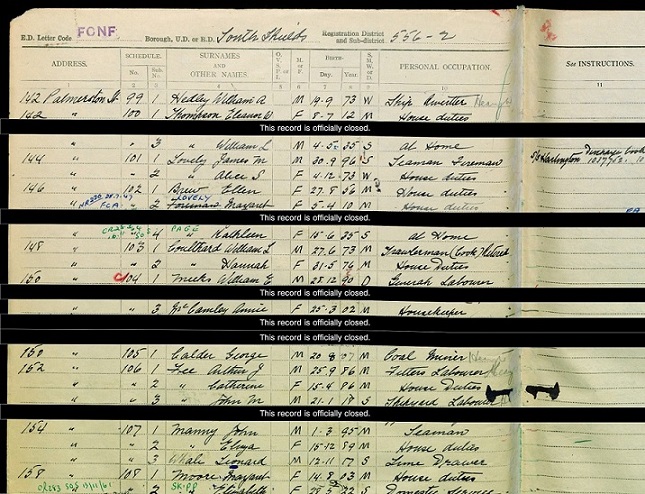 E.D. Letter Code FCNF Borough, U.D. or R.D. South Shields Registration District and Sub-District 556-2
ADDRESS. SCHEDULE. No. Sub. No. SURNAMES AND OTHER NAMES. O. V. S. P. or I. M. or F. BIRTH— Day. Year. S. M. W. or D. PERSONAL OCCUPATION. See INSTRUCTIONS.
2 3 4 5 6 7 8 9 10 11
142 Palmerston St 99 1 Hedley William A M 19.9 73 W Ship Riveter Heavy
142 " 100 1 Thompson Eleanor W F 8-7 12 M House duties
This record is officially closed.
" " 3 " William L M 4.5 35 S At Home
144 " 101 1 Lovely James M M 30.9 96 S Seaman Foreman S/S Harlington Discharge Book
" " 2 " Alice S F 4.12 73 W House duties
146 " 102 1 Brew Ellen F 27.8 56 M House duties
LOVELY
" 2 Foreman Margaret F 5-4 10 M House duties
This record is officially closed.
" 4 " Kathleen F 15-6 35 S At Home
148 " 103 1 Coulthard William L M 27.6 73 M Trawlerman (Cook) Retired
" " 2 " Hannah F 31.5 76 M House Duties
150 " C104 1 Meeks William E M 28.12 90 D General Labourer
This record is officially closed.
" " 3 McCamley Annie F 25-3 02 M Housekeeper
This record is officially closed.
This record is officially closed.
150 " 105 1 Calder George M 20 8 07 M Coal Miner
152 " 106 1 Lee Arthur J M 25.9 86 M Fitters Labourer Heavy
" " 2 " Catherine F 15.4 86 M House Duties
" " 3 " John M M 21.1 18 S Shipyard Labourer
This record is officially closed.
154 " 107 1 Manny John M 1.3 95 M Seaman
" " 2 " Eliza F 15-12 89 M House duties
" " 3 Whale Leonard M 12-11 17 S Lime Drawer
158 " 108 1 Moore Margaret F 14.8 03 M House duties
2 " Elizabeth F 28.5 22 S Domestic